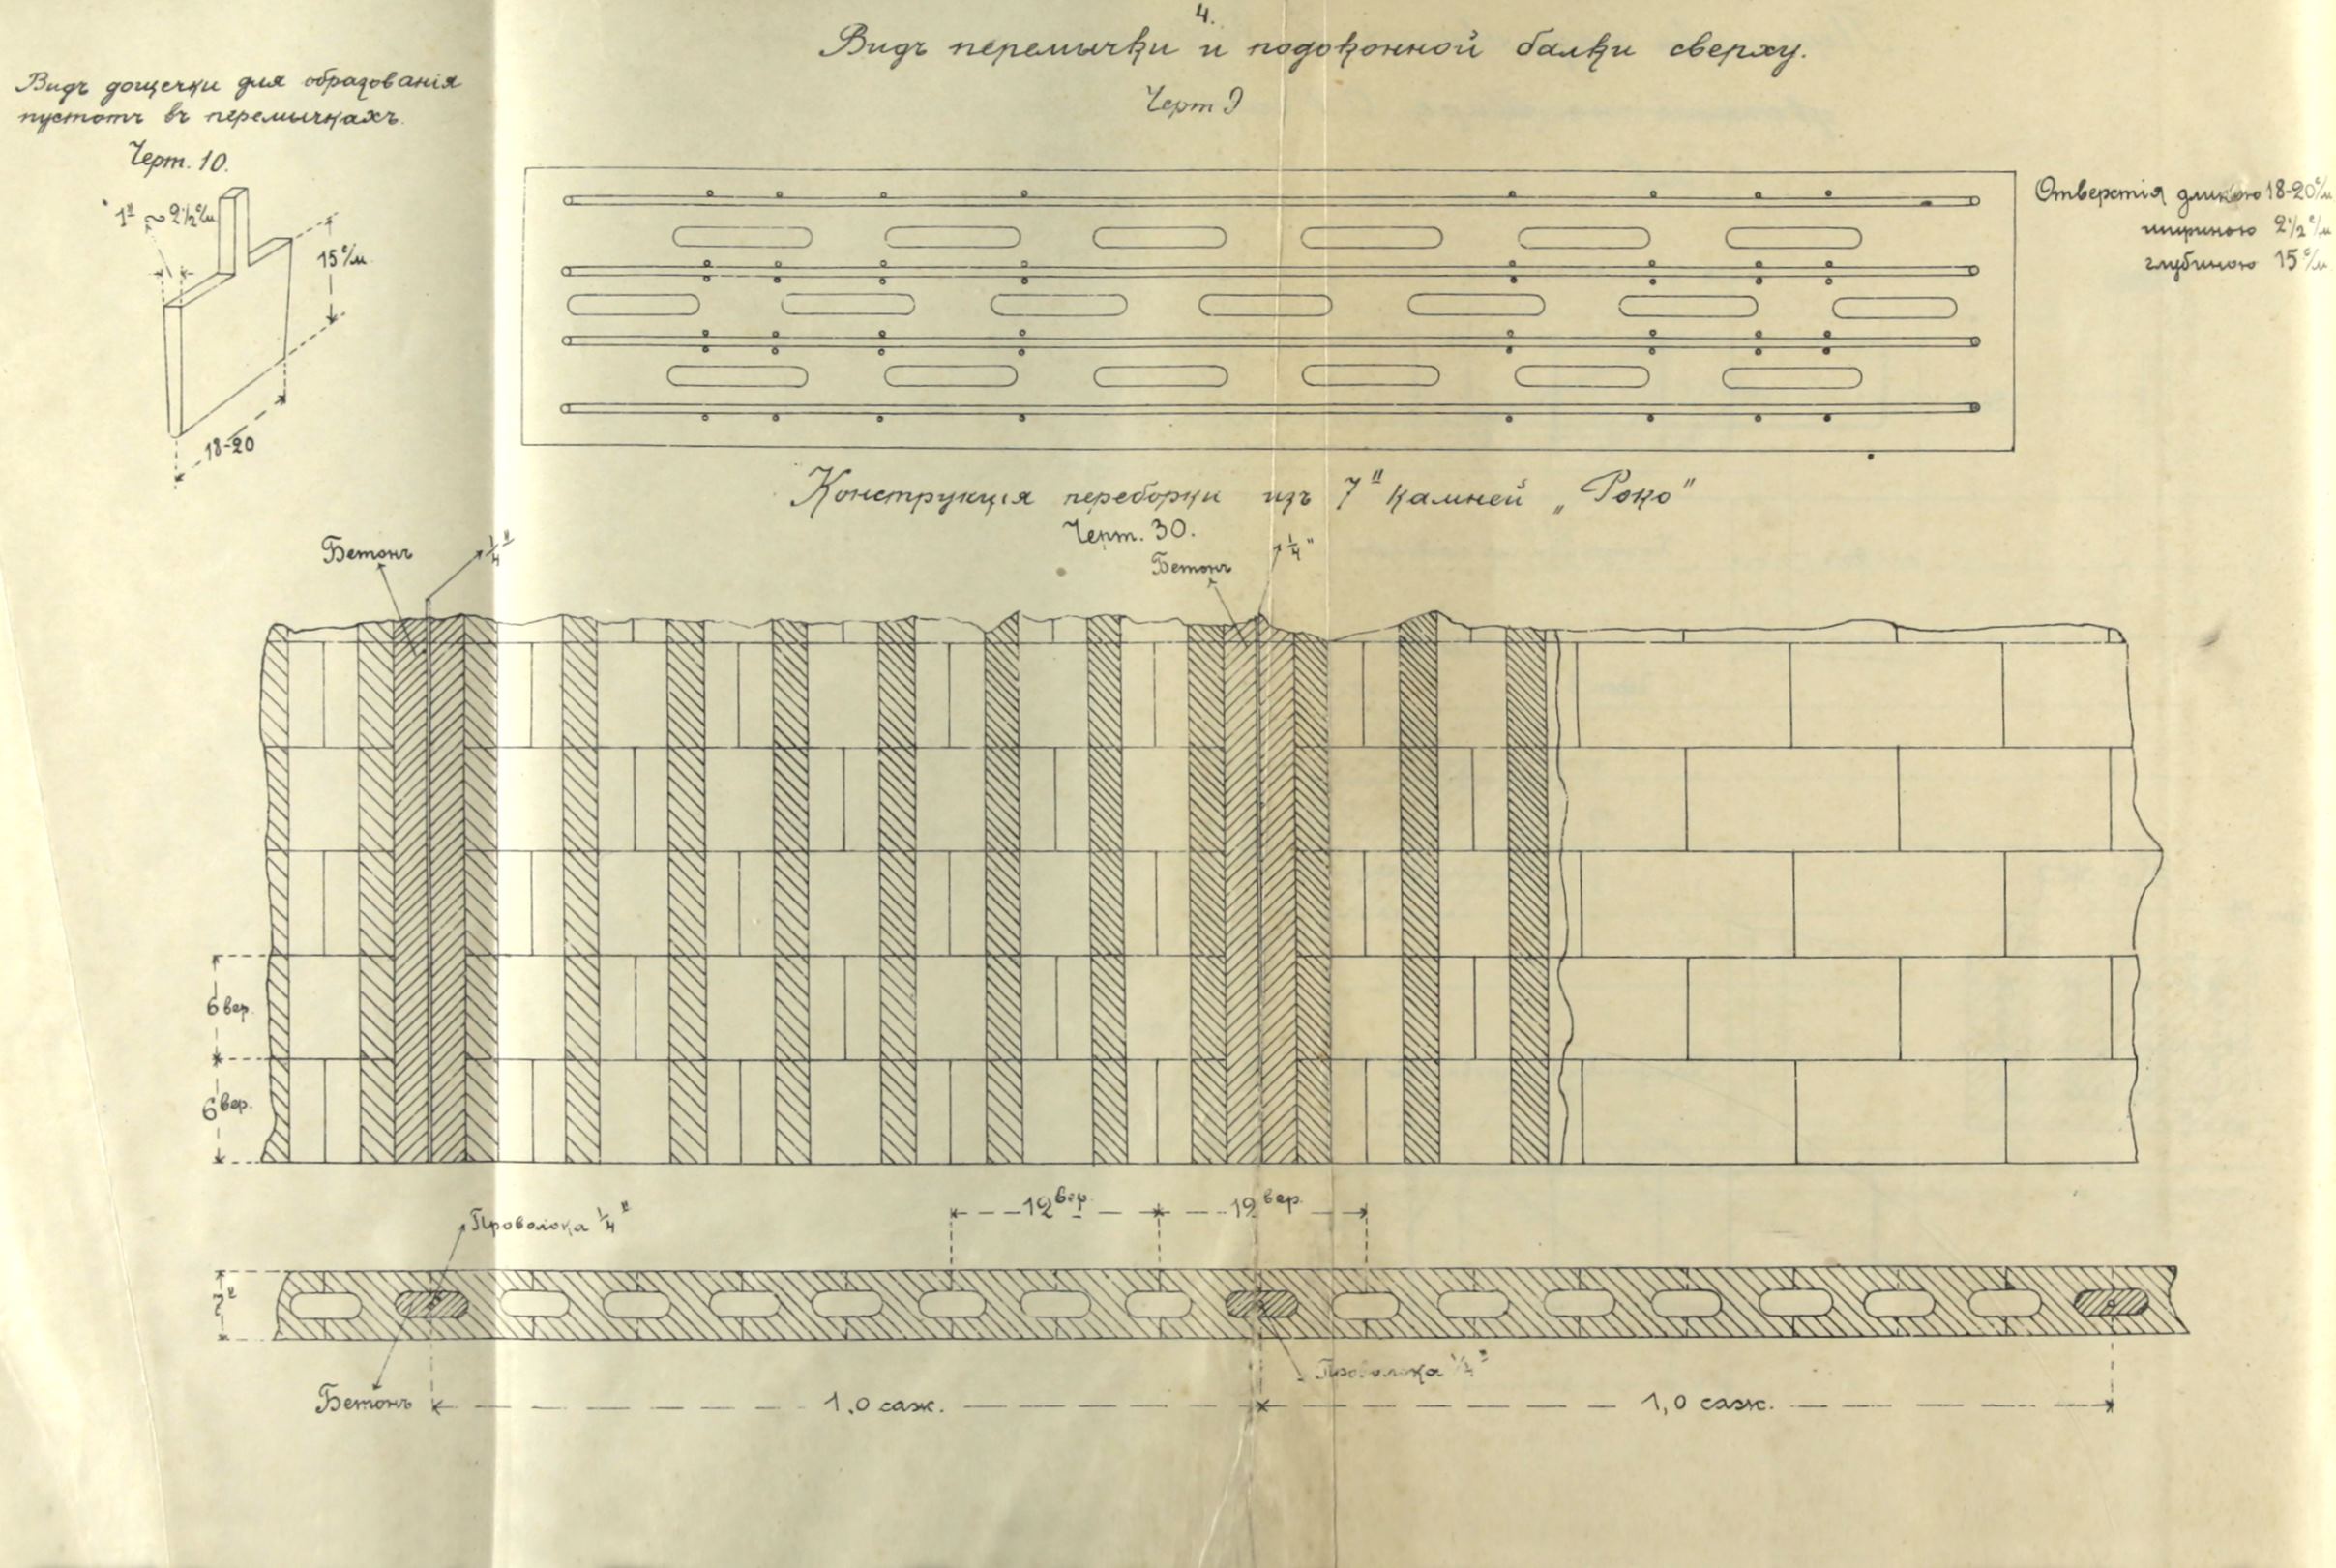 4.
Видъ перемычки и подоконной балки сверху.
Черт 9
Видъ дощечки для образованія
пустотъ въ перемычкахъ.
Черт. 10.
1" ~ 2½ с/м
15 с/м
18-20
Отверстія длиною 18-20 с/м
шириною 2½ с/м
глубиною 15 с/м
Конструкція переборки изъ 7" камней „Роко"
Черт. 30.
Бетонъ
¼"
Бетонъ
¼"
6 вер.
6 вер.
12 вер.
12 вер.
Проволока ¼"
7"
Проволока ¼"
Бетонъ
1.0 саж.
1,0 саж.